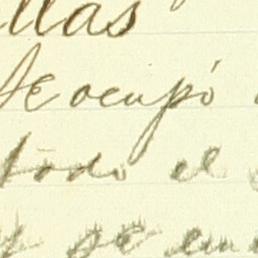 llas
Se ocupó
todo el
y se en